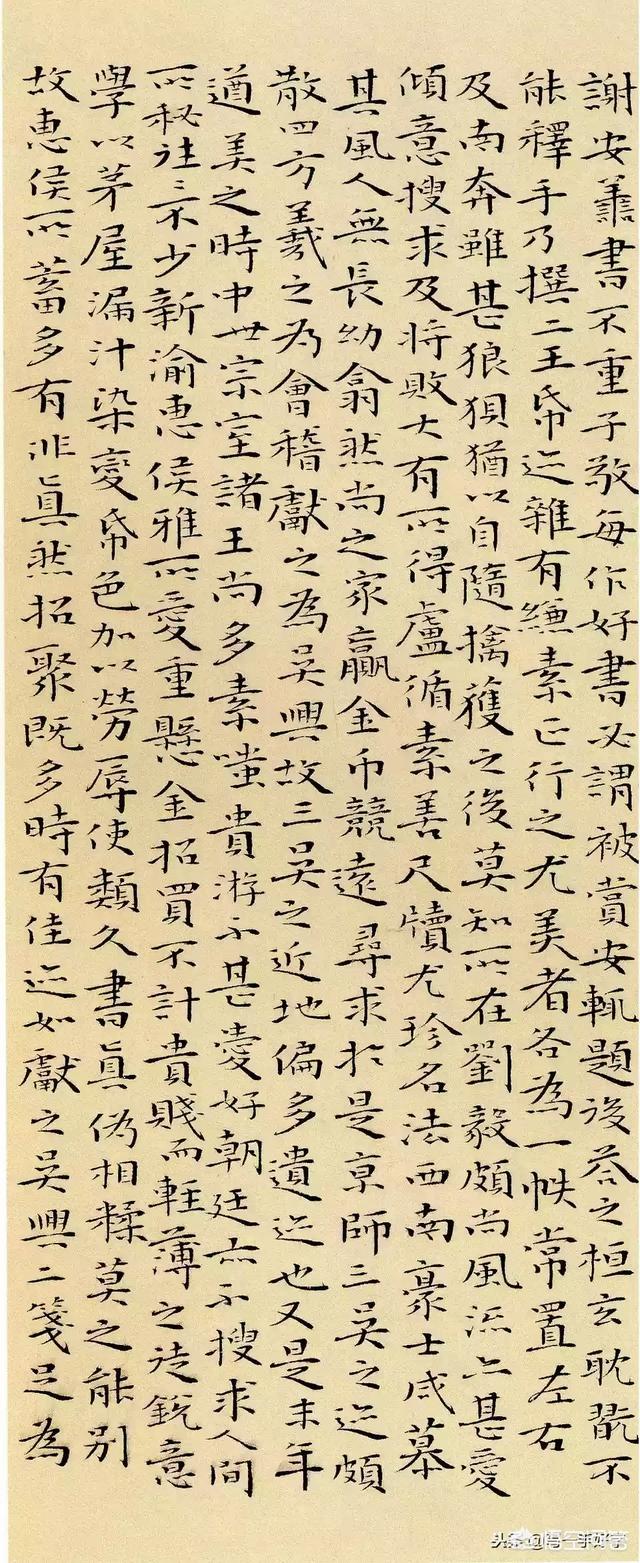 謝安善書不重子敬每作好書必謂被賞安輒題後答之桓玄耽翫不
能釋手乃撰二王帋迹雜有縑素正行之尤美者各為一帙常置左右
及南奔雖甚狼狽猶以自隨擒獲之後莫知所在劉毅頗尚風流亦甚愛
傾意搜求及将敗大有所得盧循素善尺牘尤珍名法西南豪士咸慕
其風人無長幼翕然尚之家贏金币競遠尋求於是京師三吴之迹頗
散四方羲之為會稽獻之為吴興故三吴之近地偏多遺迹也又是末年
遒美之時中世宗室諸王尚多素嗤貴游不甚愛好朝廷亦不搜求人間
所秘往三不少新渝惠侯雅所愛重懸金招買不計貴賤而輕薄之徒銳意
學以茅屋漏汁染變帋色加以勞辱使類久書真偽相糅莫之能别
故惠侯所蓄多有非真然招聚既多時有佳迹如獻之吴興二箋足為
头条@写一手好字